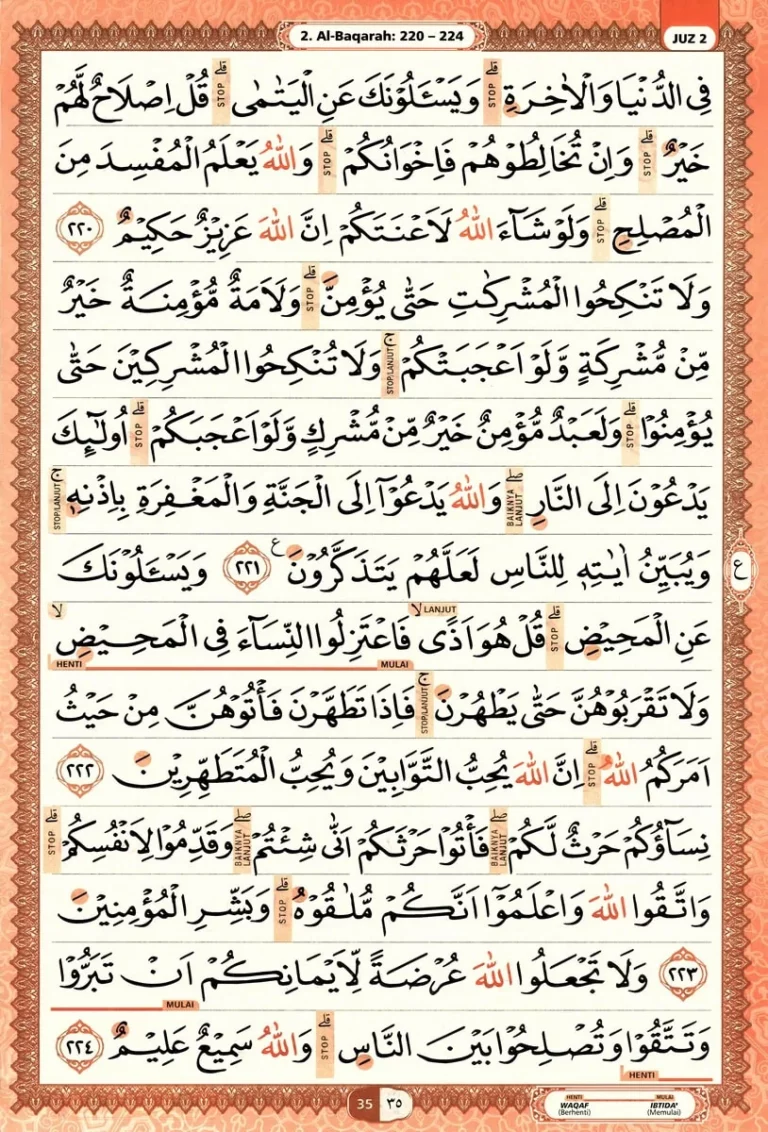 2. Al-Baqarah: 220 – 224
JUZ 2
فِى الدُّنْيَا وَالْاٰخِرَةِ ۗ وَيَسْـَٔلُوْنَكَ عَنِ الْيَتٰمٰى ۗ قُلْ اِصْلَاحٌ لَّهُمْ
خَيْرٌ ۗ وَاِنْ تُخَالِطُوْهُمْ فَاِخْوَانُكُمْ ۗ وَاللّٰهُ يَعْلَمُ الْمُفْسِدَ مِنَ
الْمُصْلِحِ ۗ وَلَوْ شَاۤءَ اللّٰهُ لَاَعْنَتَكُمْ اِنَّ اللّٰهَ عَزِيْزٌ حَكِيْمٌ ٢٢٠
وَلَا تَنْكِحُوا الْمُشْرِكٰتِ حَتّٰى يُؤْمِنَّ ۗ وَلَاَمَةٌ مُّؤْمِنَةٌ خَيْرٌ
مِّنْ مُّشْرِكَةٍ وَّلَوْ اَعْجَبَتْكُمْ ۚ وَلَا تُنْكِحُوا الْمُشْرِكِيْنَ حَتّٰى
يُؤْمِنُوْا ۗ وَلَعَبْدٌ مُّؤْمِنٌ خَيْرٌ مِّنْ مُّشْرِكٍ وَّلَوْ اَعْجَبَكُمْ ۗ اُولٰۤىِٕكَ
يَدْعُوْنَ اِلَى النَّارِ ۖ وَاللّٰهُ يَدْعُوْٓا اِلَى الْجَنَّةِ وَالْمَغْفِرَةِ بِاِذْنِهٖ ۚ
وَيُبَيِّنُ اٰيٰتِهٖ لِلنَّاسِ لَعَلَّهُمْ يَتَذَكَّرُوْنَ ࣖ ٢٢١ وَيَسْـَٔلُوْنَكَ
ع
عَنِ الْمَحِيْضِ ۗ قُلْ هُوَ اَذًىۙ فَاعْتَزِلُوا النِّسَاۤءَ فِى الْمَحِيْضِۙ
LANJUT
HENTI MULAI
وَلَا تَقْرَبُوْهُنَّ حَتّٰى يَطْهُرْنَ ۚ فَاِذَا تَطَهَّرْنَ فَأْتُوْهُنَّ مِنْ حَيْثُ
اَمَرَكُمُ اللّٰهُ ۗ اِنَّ اللّٰهَ يُحِبُّ التَّوَّابِيْنَ وَيُحِبُّ الْمُتَطَهِّرِيْنَ ٢٢٢
نِسَاۤؤُكُمْ حَرْثٌ لَّكُمْ ۖ فَأْتُوْا حَرْثَكُمْ اَنّٰى شِئْتُمْ ۖ وَقَدِّمُوْا لِاَنْفُسِكُمْ ۗ
وَاتَّقُوا اللّٰهَ وَاعْلَمُوْٓا اَنَّكُمْ مُّلٰقُوْهُ ۗ وَبَشِّرِ الْمُؤْمِنِيْنَ
٢٢٣ وَلَا تَجْعَلُوا اللّٰهَ عُرْضَةً لِّاَيْمَانِكُمْ اَنْ تَبَرُّوْا
MULAI
وَتَتَّقُوْا وَتُصْلِحُوْا بَيْنَ النَّاسِ ۗ وَاللّٰهُ سَمِيْعٌ عَلِيْمٌ ٢٢٤
HENTI
35 ٣٥
HENTI MULAI
WAQAF IBTIDA'
(Berhenti) (Memulai)